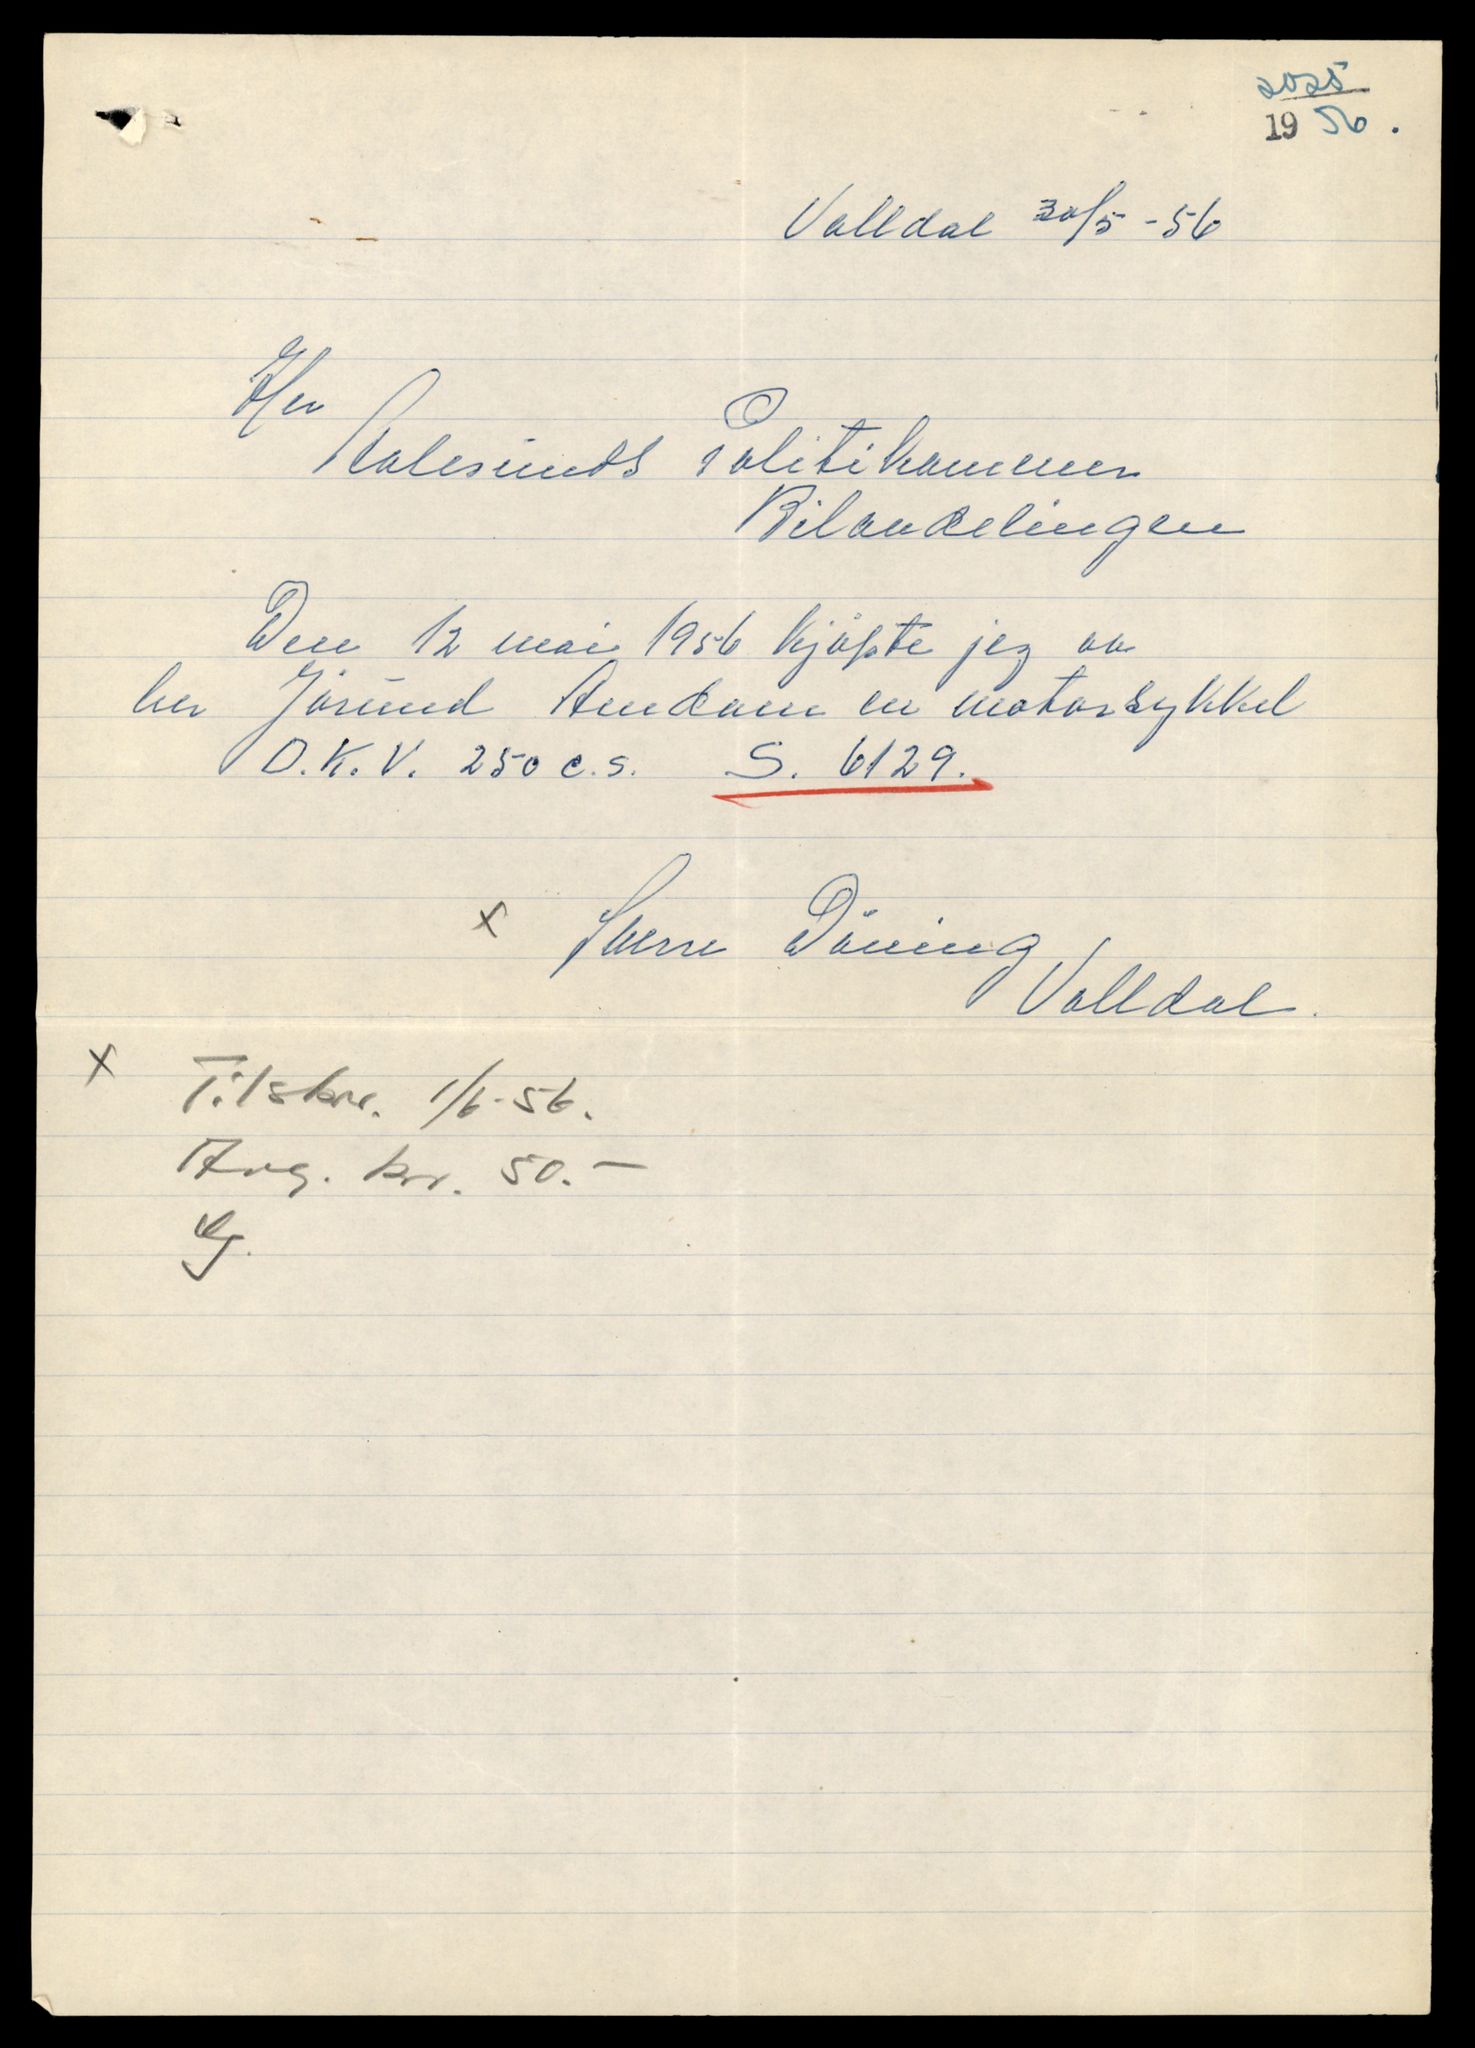 2025
19 56.
Valldal 30/5 - 56
Her
Aalesunds Politikammer
Bilavdelingen
Den 12 mai 1956 kjøpte jeg av
her Jörund Amdam en motorsykkel
D.K.V. 250 c.s. S. 6129.
x Sverre Döving
Valldal.
x Tilskr. 1/6-56.
Avg. kr. 50.-